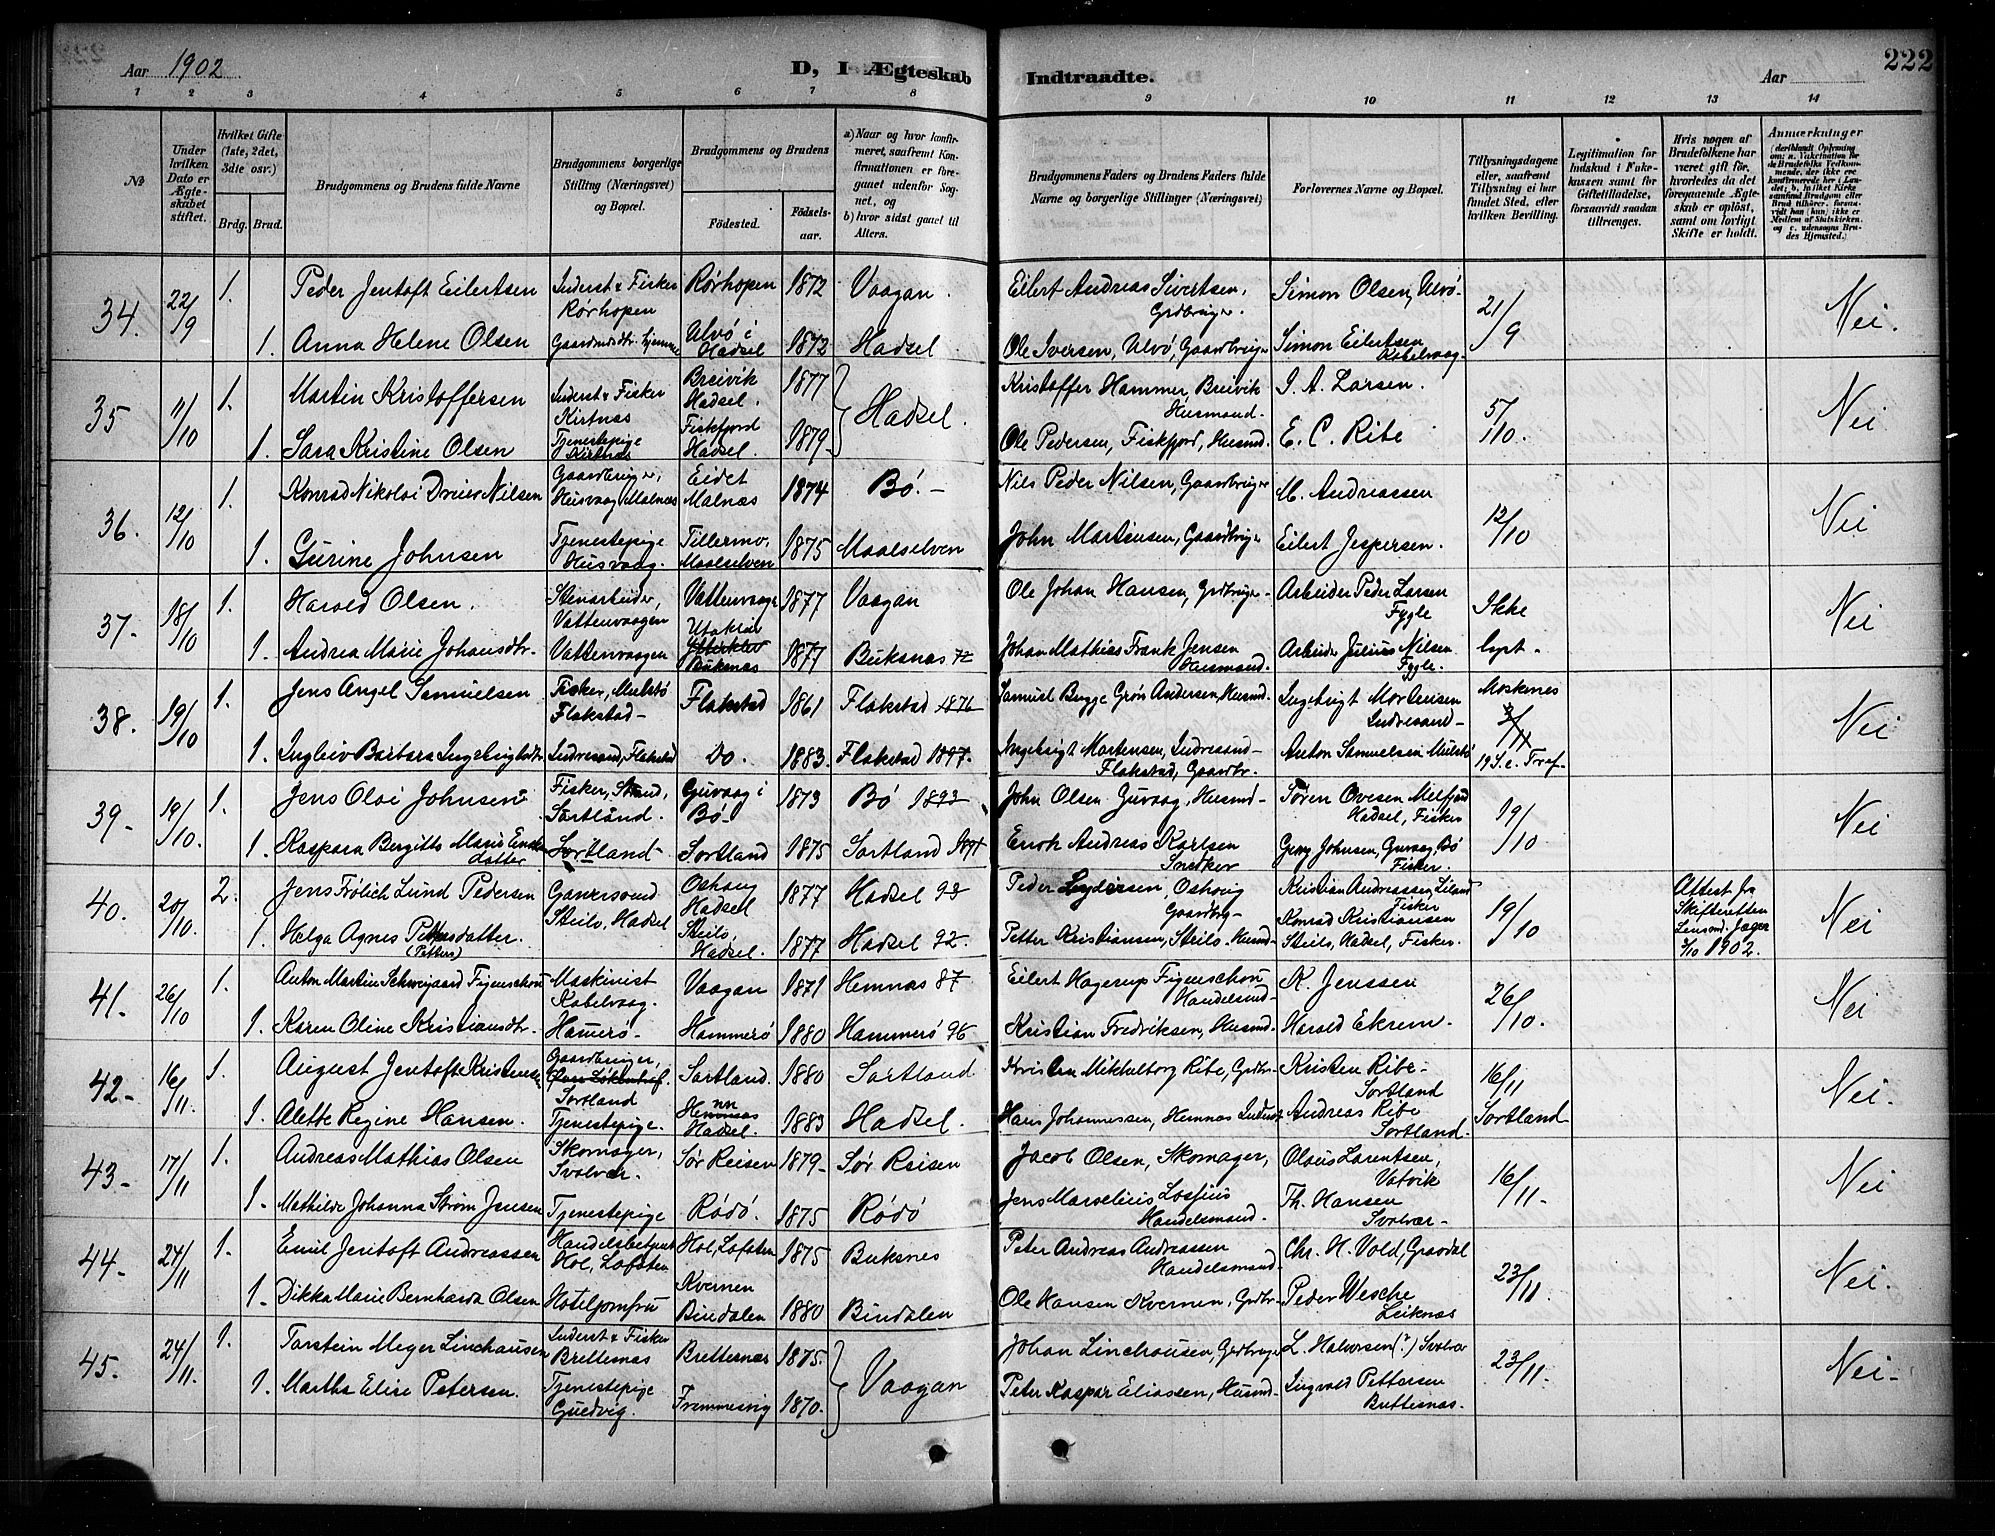 Aar 1902
D, I Ægteskab Indtraadte.
Aar
222
1 2 3 4 5 6 7 8 9 10 11 12 13 14
No
Under hvilken Dato er Ægteskabet stiftet.
Hvilket Gifte (1ste, 2det, 3die osv.)
Brdg. Brud.
Brudgommens og Brudens fulde Navne
Brudgommens borgerlige Stilling (Næringsvei) og Bopæl.
Brudgommens og Brudens
Fødested. Fødselsaar.
a) Naar og hvor konfirmeret, saafremt Konfirmationen er foregaaet udenfor Sognet, og
b) hvor sidst gaaet til Alters.
Brudgommens Faders og Brudens Faders fulde Navne og borgerlige Stillinger (Næringsvei)
Forlovernes Navne og Bopæl.
Tillysningsdagene eller, saafremt Tillysning ei har fundet Sted, efter hvilken Bevilling.
Legitimation for Indskud i Enkekassen samt for Giftetilladelse, forsaavidt saadan tiltrænges.
Hvis nogen af Brudefolkene har været gift før, hvorledes da det foregaaende Ægteskab er opløst, samt om lovligt Skifte er holdt.
Anmærkninger
34. 22/9 1. Peder Jentoft Eilertsen Inderst & Fisker Rørhopen Rørhopen 1872 Vaagan. Eilert Andreas Sivertsen, Grdbruger. Simon Olsen, Ulvø. 21/9 Nei.
1. Anna Helene Olsen Gaardmdsdtr. hjemme Ulvø i Hadsel 1872 Hadsel. Ole Iversen, Ulvø, Gaardbruger Simon Eilertsen Kabelvaag
35 11/10 1. Martin Kristoffersen Inderst & Fisker Kirtnæs Breivik Hadsel. 1877 Hadsel. Kristoffer Hammer, Breivik Husmand. J. A. Larsen. 5/10. Nei
1. Sara Kristine Olsen Tjenestepige Kirtnæs Fiskfjord Hadsel. 1879 Ole Pedersen, Fiskfjord, Husmd. E. C. Ribe
36. 12/10 1. Konrad Nikolai Dreier Nilsen Gaardbruger, Husvaag Malnæs Eidet Malnæs 1874 Bø. Nils Peder Nilsen, Gaardbruger M. Andreassen 12/10 Nei
1. Gurine Johnsen Tjenestepige Husvaag. Tillermo, Maalselven 1875 Maalselven John Martinsen, Gaardbruger Eilert Jespersen.
37. 18/10 1. Harald Olsen. Stenarbeider, Vattenvaagen Vattenvaagen 1877 Vaagan Ole Johan Hansen, Grdbruger Arbeider Peder Larsen Fygle Ikke lyst. Nei
1. Andrea Marie Johansdtr. Vattenvaagen Utakleiv Buksnæs 1877 Buksnæs Johan Mathias Frank Jensen Husmand. Arbeider Julius Nilsen Fygle.
38. 19/10 1. Jens Angel Samuelsen Fisker, Mulstø Flakstad Flakstad 1861 Flakstad 1876 Samuel Bugge Grøn Andersen, Husmd. Ingebrigt Mortensen Indresand Moskenes Nei
1. Ingleiv Barbara Ingebrigtsdtr. Indresand, Flakstad Do. 1883. Flakstad 1897. Ingebrigt Mortensen, Indresand Flakstad, Gaardbr. Anton Samuelsen Mulstø 19 S. e. Tref.
39 19/10. 1. Jens Olai Johnsen Fisker, Strand, Sortland. Guvaag i Bø 1873 Bø 1893 John Olsen Guvaag, Husmd. Søren Ovesen Melfjord Hadsel, Fisker 19/10 Nei
1. Kaspara Bergitte Marie Enoksdatter Sortland Sortland 1875 Sortland Enok Andreas Karlsen Snedker Georg Johnsen, Guvaag, Bø Fisker.
40. 20/10. 2. Jens Frølich Lund Pedersen Gankesund Steilo, Hadsel Oshaug Hadsel 1877 Hadsel 92 Peder Lydersen, Oshoug Gaardbrg. Kristian Andreassen, Liland Fisker 19/10 Attest fra Skifteretten Lensmd. Jager 3/10 1902. Nei
1. Helga Agnes Pettersdatter. (Petters) Steilo, Hadsel. 1877 Hadsel 92. Petter Kristiansen, Steilo. Husmd. Konrad Kristiansen Steilo, Hadsel, Fisker.
41. 26/10 1. Anton Martin Schweigaard Figenschou Maskinist Kabelvaag. Vaagan 1871 Hemnæs 87 Eilert Hagerup Figenschou Handelsmd. K. Jenssen 26/10. Nei
1. Karen Oline Kristiansdtr. Hamerø. Hammerø 1880 Hammerø 96 Kristian Fredriksen, Husmd. Harald Ekrem.
42 16/11. 1. August Jentoft Kristensen Gaardbruger, Sortland Sortland. 1880 Sortland Kristen Mikkalborg Ribe, Grdbr. Kristen Ribe Sortland 16/11 Sortland Nei.
1. Alette Regine Hansen. Tjenestepige. Hennes Hadsel. 1883 Hadsel. Hans Johannessen, Hemnæs Inderst Andreas Ribe Sortland.
43 17/11 1. Andreas Mathias Olsen Skomager, Svolvær. Sør Reisen 1879 Sør Reisen Jacob Olsen, Skomager, Olaus Larentsen, Vatvik 16/11. Nei
1. Mathilde Johanna Strøm Jensen Tjenestepige Rødø. 1875 Rødø Jens Marselius Losjius Handelsmand. Th. Hansen Svolvær
44 24/11 1. Emil Jentoft Andreassen Handelsbetjent Hol, Lofoten Hol, Lofoten 1875 Buksnes Peter Andreas Andreassen Handelsmand. Chr. H. Vold, Gravdal 23/11. Nei.
1. Dikka Marie Bernharda Olsen Hoteljomfru Kvernen Bindalen 1880 Bindalen Ole Hansen Kvernen, Grdbr. Peder Wesche Leiknæs
45. 24/11. 1. Torstein Meyer Linchausen Inderst & Fisker Brettesnæs Brettesnæs 1875. Vaagan Johan Linchausen, Grdbruger L. Halvorsen (?) Svolvær 23/11. Nei
1. Martha Elise Petersen. Tjenestepige Gjuedvig. Fremmesvig 1870. Peter Kaspar Eliassen, Husmd. Ingvald Pettersen Brettesnæs.